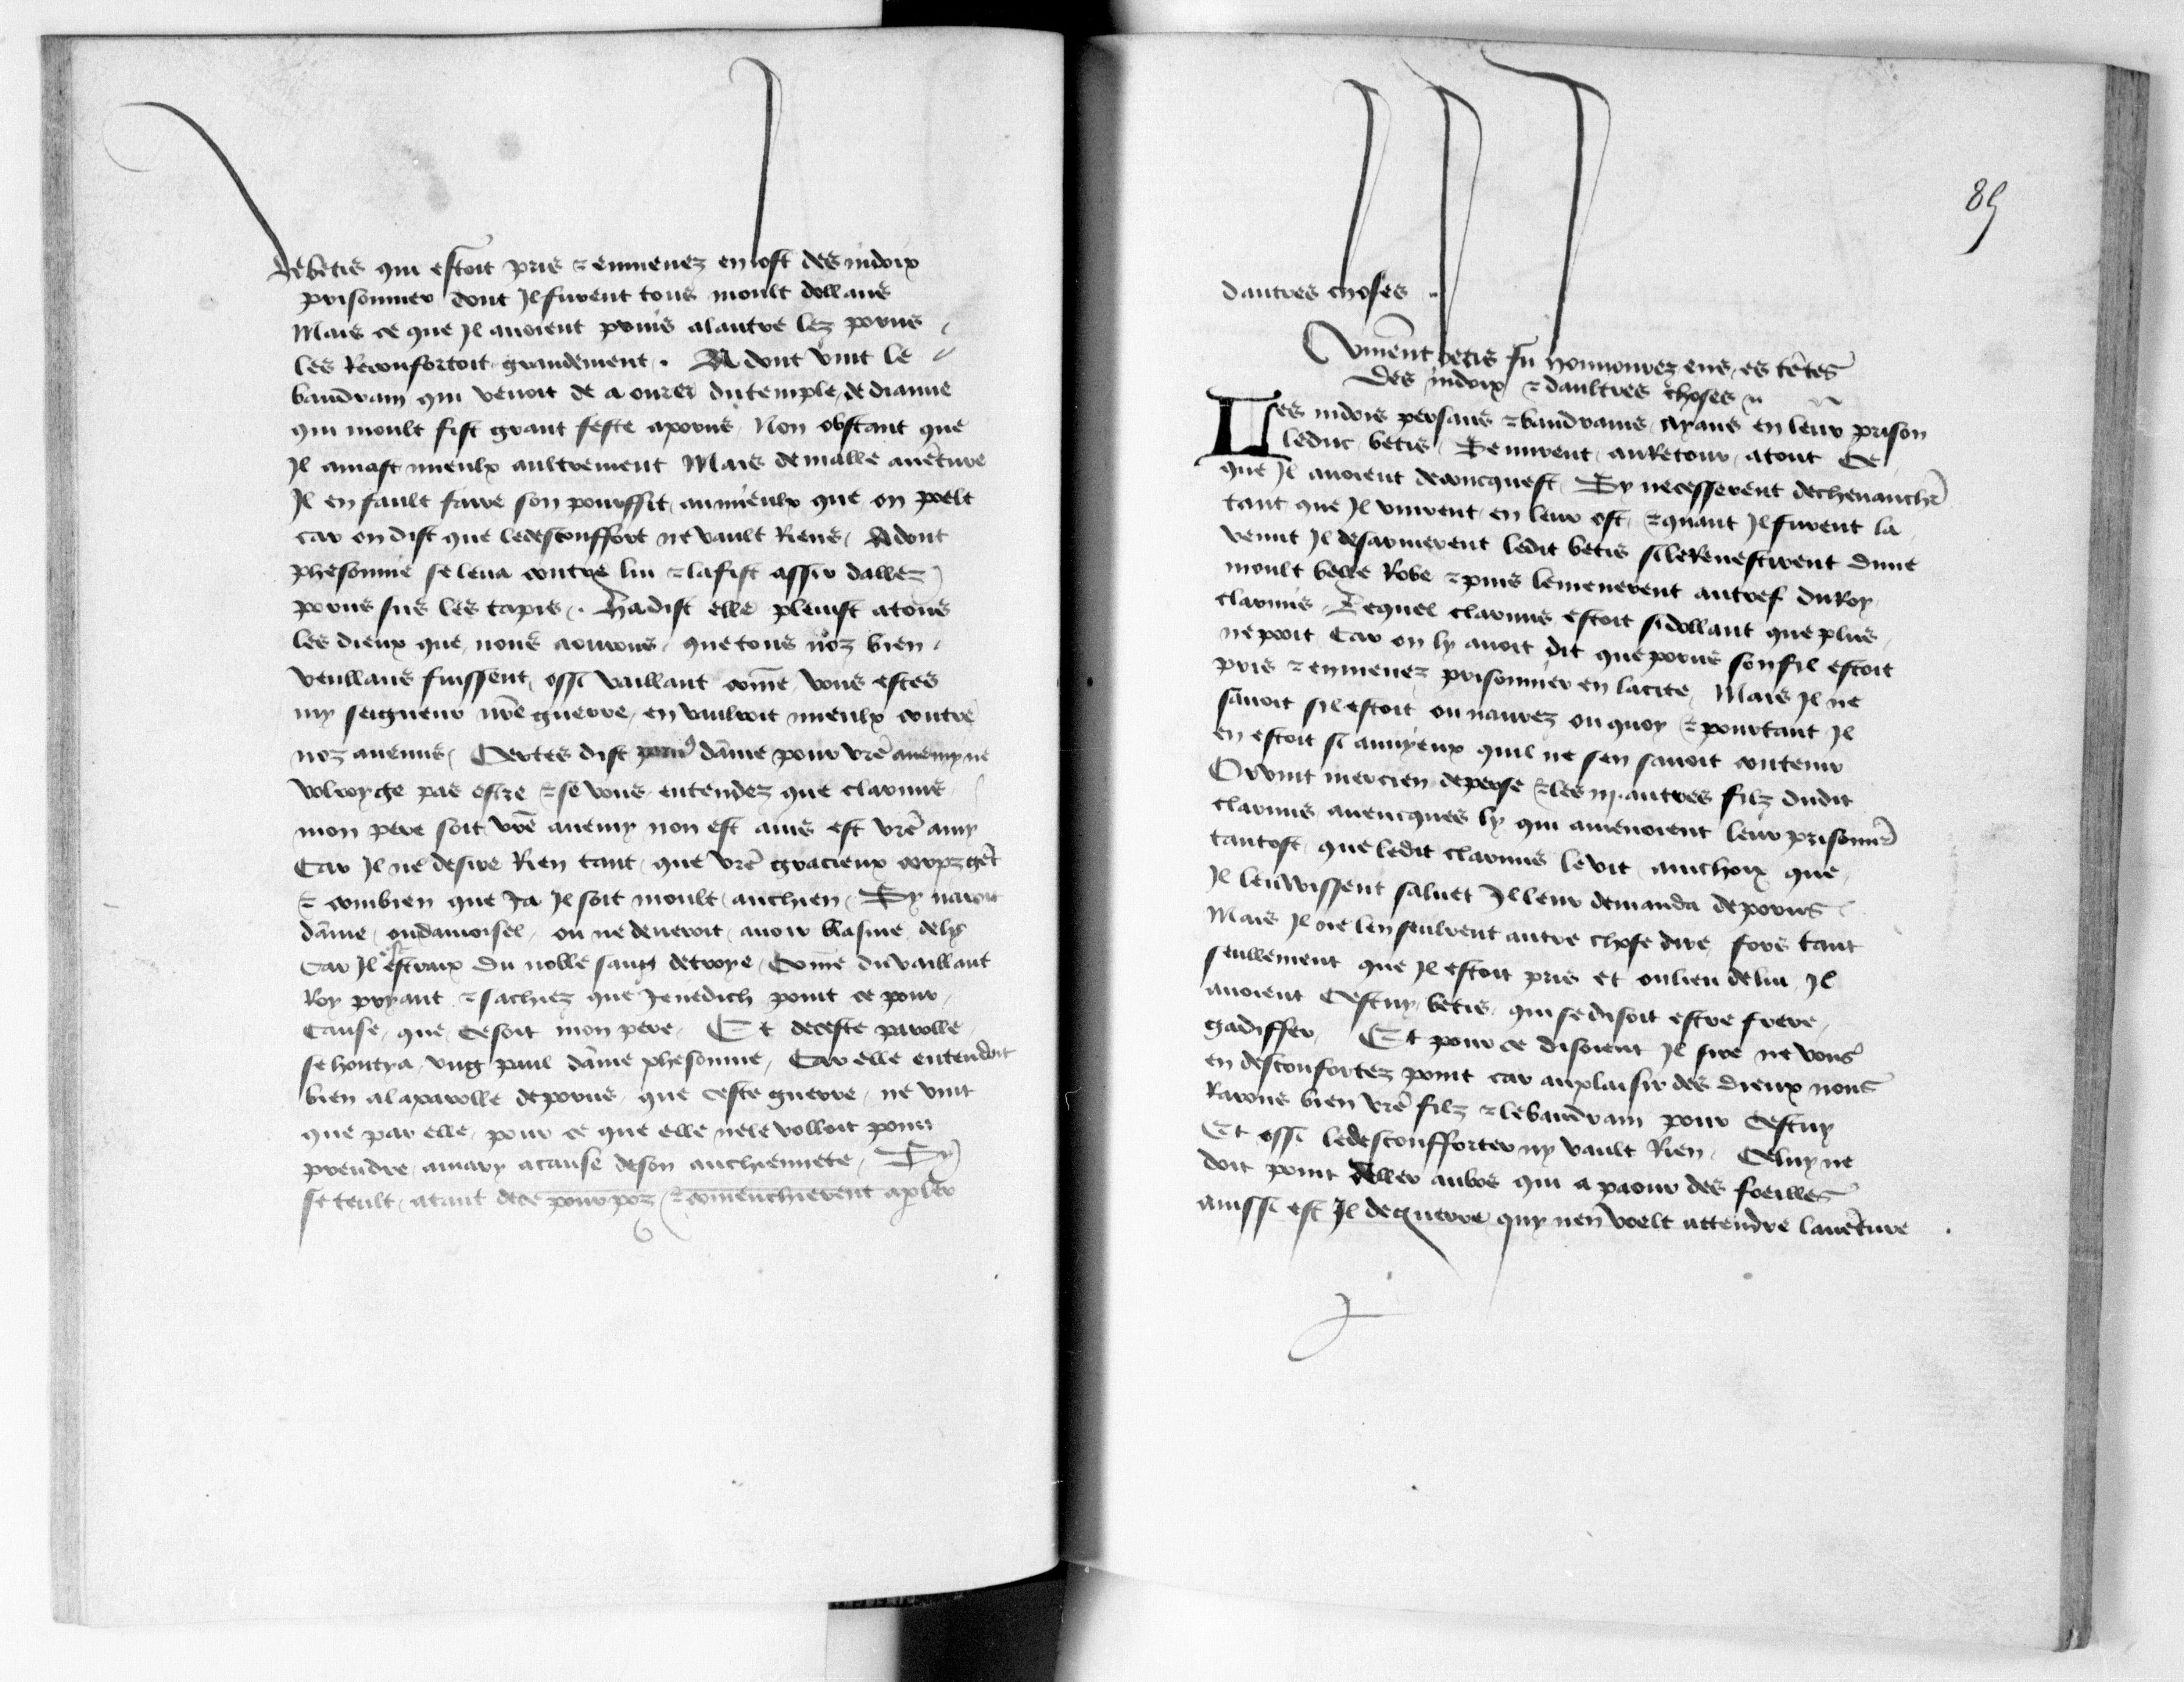 de betis qui estoit pris & enmenez en lost des indoix
prisonnier dont Il furent tous moult dollans
Mais ce que Il auoient prins alautre lez porus
les Reconfortoit grandement. Adont vint le
baudram qui venoit de aourer du temple de dianne
qui moult fist grant feste aporus Non obstant que
Il amast mieulx aultrement Mais de malle auẽture
Il en fault faire son pourffit au mieulx que on poelt
car on dist que le desconffort ne vault Riens Adont
phesonnie se leua contre lui & la fist assir dallez
porus sus les tapis. Ha dist elle pleuist atous
les dieux que nous aourons que tous noz bien
veullans fuissent ossi vaillant com̃e vous estes
my seigneur nrẽ guerre en vauldroit mieulx contre
noz anemis Certes dist porus dame pour vrẽ anemy ne
volroy ge pas estre & se vous entendez que clarvus
mon pere soit vrẽ anemy non est ains est vrẽ amy
Car Il ne desire Rien tant que vrẽ gracieux corpz gẽt
& combien que Ja Il soit moult anchien Sy naroit
dame ou damoisel ou ne deueroit auoir blasme de ly
Car Il est estraix du noble sang de troye Com̃e du vaillant
Roy pryant & sachiez que Je ne dich point ce pour
Cause que ce soit mon pere Et de ceste parolle
se hontya vng paul dame phesonnie Car elle entendoit
bien a la parolle de porus que ceste guerre ne vint
que par elle pour ce que elle ne le volloit point
prendre amary a cause de son anchiennete Sy
se teult atant de ce pourpoz & com̃enchierent a pler
85
dautres choses.
Comẽnt betis fu honnourez ens es tẽtes
des indoix & daultres choses
Les indois persans & baudrains ayans en leur prison
le duc betis Se mirent au Retour atout Ce
que Il auoient de concquest Sy ne cesserent de cheuauchr̃
tant que Il vinrent en leur ost & quant Il furent la
venut Il desarmerent ledit betis si le Reuestirent dune
moult belle Robe & puis lemenerent au tref du Roy
clarvus Lequel clarvus estoit si dollant que plus
ne pooit Car on ly auoit dit que porus son fil estoit
pris & enmenez prisonnier en la cite Mais Il ne
sauoit sil estoit ou naurez ou quoy & pourtant Il
en estoit si annyeux quil ne sen sauoit contenir
Or vint mercien de perse & les iij autres filz dudit
clarvus auencques ly qui amenoient leur prisonnr̃
tantost que ledit clarvus le vit anchoix que
Il leuwissent saluet Il leur demanda de porus
Mais Il ne len seulrent autre chose dire fors tant
seullement que Il estoit pris et ou lieu de lui Il
auoient Cestuy betis qui se disoit estre frere
gadiffer Et pour ce disoient Il sire ne vous
en desconfortez point car au plaisir des dieux nous
Rarons bien vrẽ filz & le baudrain pour Cestuy
Et ossi le desconfforter ny vault Rien Celuy ne
doit point aller au bos qui a paour des foeilles
aussi est Il de guerre quy nen voelt attendre lauẽture